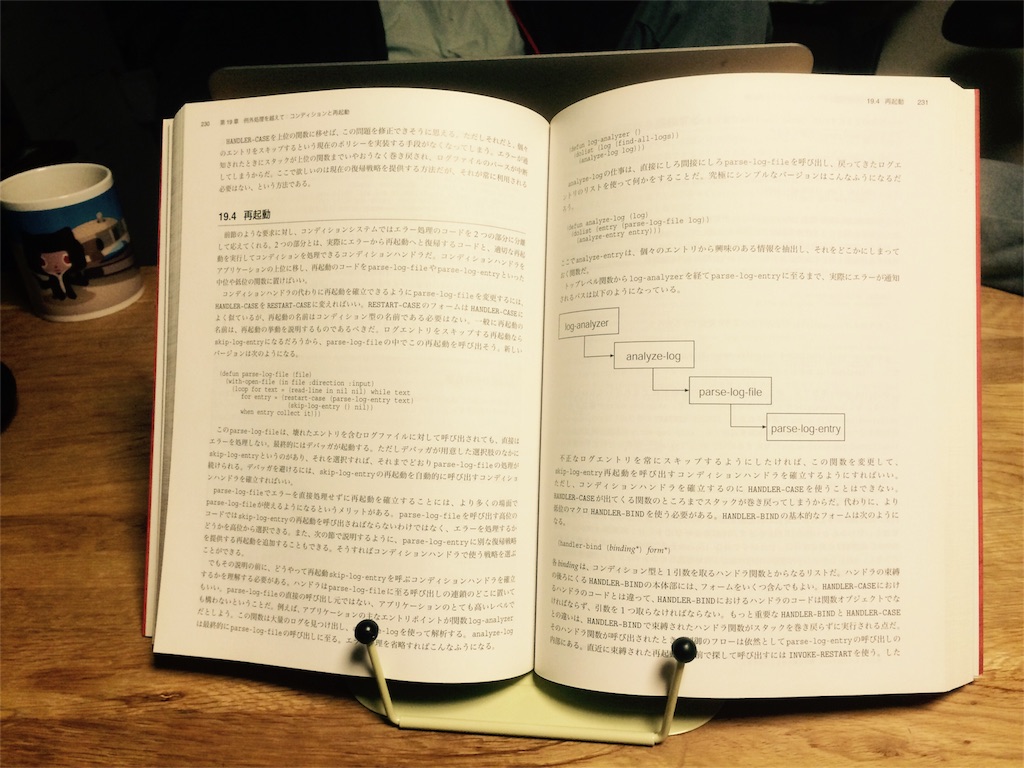 230 第19章 例外処理を越えて：コンディションと再起動
HANDLER-CASEを上位の関数に移せば、この問題を修正できそうに思える。ただしそれだと、個々
のエントリをスキップするという現在のポリシーを実装する手段がなくなってしまう。エラーが通
知されたときにスタックが上位の関数までいやおうなく巻き戻され、ログファイルのパースが中断
してしまうからだ。ここで欲しいのは現在の復帰戦略を提供する方法だが、それが常に利用される
必要はない、という方法である。
19.4 再起動
前節のような要求に対し、コンディションシステムではエラー処理のコードを2つの部分に分離
して応えてくれる。2つの部分とは、実際にエラーから再起動へと復帰するコードと、適切な再起
動を実行してコンディションを処理できるコンディションハンドラだ。コンディションハンドラを
アプリケーションの上位に移し、再起動のコードをparse-log-fileやparse-log-entryといった
中位や低位の関数に置けばいい。
コンディションハンドラの代わりに再起動を確立できるようにparse-log-fileを変更するには、
HANDLER-CASEをRESTART-CASEに変えればいい。RESTART-CASEのフォームはHANDLER-CASEに
よく似ているが、再起動の名前はコンディション型の名前である必要はない。一般に再起動の
名前は、再起動の挙動を説明するものであるべきだ。ログエントリをスキップする再起動なら
skip-log-entryになるだろうから、parse-log-fileの中でこの再起動を呼び出そう。新しい
バージョンは次のようになる。
(defun parse-log-file (file)
(with-open-file (in file :direction :input)
(loop for text = (read-line in nil nil) while text
for entry = (restart-case (parse-log-entry text)
(skip-log-entry () nil))
when entry collect it)))
このparse-log-fileは、壊れたエントリを含むログファイルに対して呼び出されても、直接は
エラーを処理しない。最終的にはデバッガが起動する。ただしデバッガが用意した選択肢のなかに
skip-log-entryというのがあり、それを選択すれば、それまでどおりparse-log-fileの処理が
続けられる。デバッガを避けるには、skip-log-entryの再起動を自動的に呼び出すコンディショ
ンハンドラを確立すればいい。
parse-log-fileでエラーを直接処理せずに再起動を確立することには、より多くの場面で
parse-log-fileが使えるようになるというメリットがある。parse-log-fileを呼び出す高位の
コードではskip-log-entryの再起動を呼び出さねばならないわけではなく、エラーを処理するか
どうかを高位から選択できる。また、次の節で説明するように、parse-log-entryに別な復帰戦略
を提供する再起動を追加することもできる。そうすればコンディションハンドラで使う戦略を選ぶ
ことができる。
でもその説明の前に、どうやって再起動skip-log-entryを呼ぶコンディションハンドラを確立
するかを理解する必要がある。ハンドラはparse-log-fileに至る呼び出しの連鎖のどこに置いて
もいい。parse-log-fileの直接の呼び出し元ではない、アプリケーションのとても高いレベルで
も構わないということだ。例えば、アプリケーションの主なエントリポイントが関数log-analyzer
だとしよう。この関数は大量のログを見つけ出し、-logを使って解析する。analyze-log
は最終的にparse-log-fileの呼び出しに至る。エ理を省略すればこんなふうになる。
19.4 再起動 231
(defun log-analyzer ()
(dolist (log (find-all-logs))
(analyze-log log)))
analyze-logの仕事は、直接にしろ間接にしろparse-log-fileを呼び出し、戻ってきたログエ
ントリのリストを使って何かをすることだ。究極にシンプルなバージョンはこんなふうになるだ
ろう。
(defun analyze-log (log)
(dolist (entry (parse-log-file log))
(analyze-entry entry)))
ここでanalyze-entryは、個々のエントリから興味のある情報を抽出し、それをどこかにしまって
おく関数だ。
トップレベル関数からlog-analyzerを経てparse-log-entryに至るまで、実際にエラーが通知
されるパスは以下のようになっている。
log-analyzer
analyze-log
parse-log-file
parse-log-entry
不正なログエントリを常にスキップするようにしたければ、この関数を変更して、
skip-log-entry再起動を呼び出すコンディションハンドラを確立するようにすればいい。
ただし、コンディションハンドラを確立するのにHANDLER-CASEを使うことはできない。
HANDLER-CASEが出てくる関数のところまでスタックが巻き戻ってしまうからだ。代わりに、より
低位のマクロHANDLER-BINDを使う必要がある。HANDLER-BINDの基本的なフォームは次のように
なる。
(handler-bind (binding*) form*)
各bindingは、コンディション型と1引数を取るハンドラ関数とからなるリストだ。ハンドラの束縛
の後ろにくるHANDLER-BINDの本体部には、フォームをいくつ含んでもよい。HANDLER-CASEにおけ
るハンドラのコードとは違って、HANDLER-BINDにおけるハンドラのコードは関数オブジェクトでな
ければならず、引数を1つ取らなければならない。もっと重要なHANDLER-BINDとHANDLER-CASE
との違いは、HANDLER-BINDで束縛されたハンドラ関数がスタックを巻き戻らずに実行される点だ。
そのハンドラ関数が呼び出されたとき御のフローは依然としてparse-log-entryの呼び出しの
内部にある。直近に束縛された再起前で探して呼び出すにはINVOKE-RESTARTを使う。した